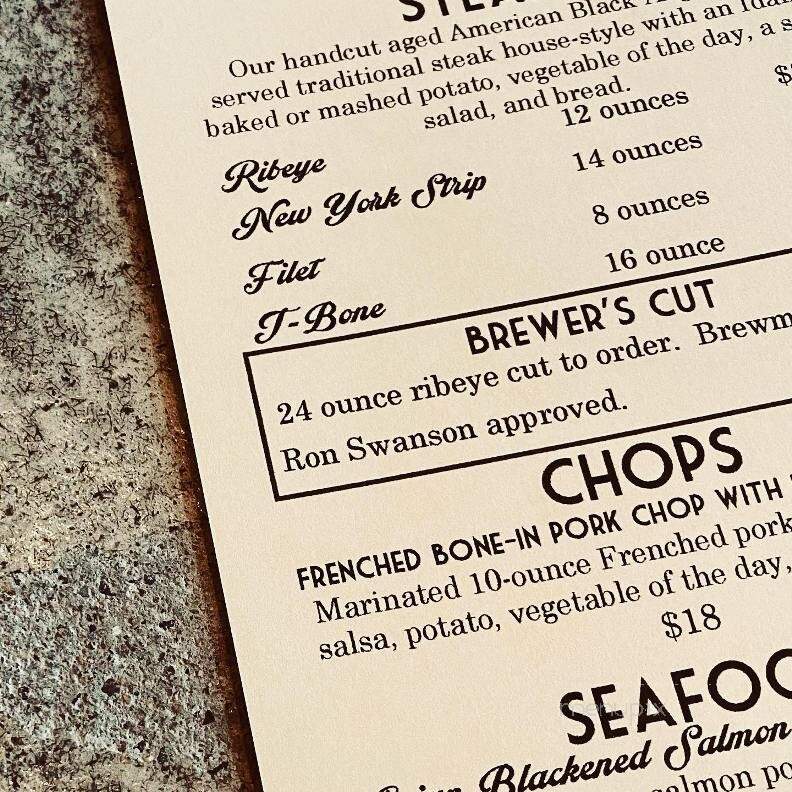 Our handcut aged American Black
served traditional steak house-style with an
baked or mashed potato, vegetable of the day, a
salad, and bread.
Ribeye 12 ounces
New York Strip 14 ounces
Filet 8 ounces
T-Bone 16 ounce
BREWER'S CUT
24 ounce ribeye cut to order.
Ron Swanson approved.
CHOPS
FRENCHED BONE-IN PORK CHOP WITH
Marinated 10-ounce Frenched pork
salsa, potato, vegetable of the day,
$18
Blackened Salmon
salmon